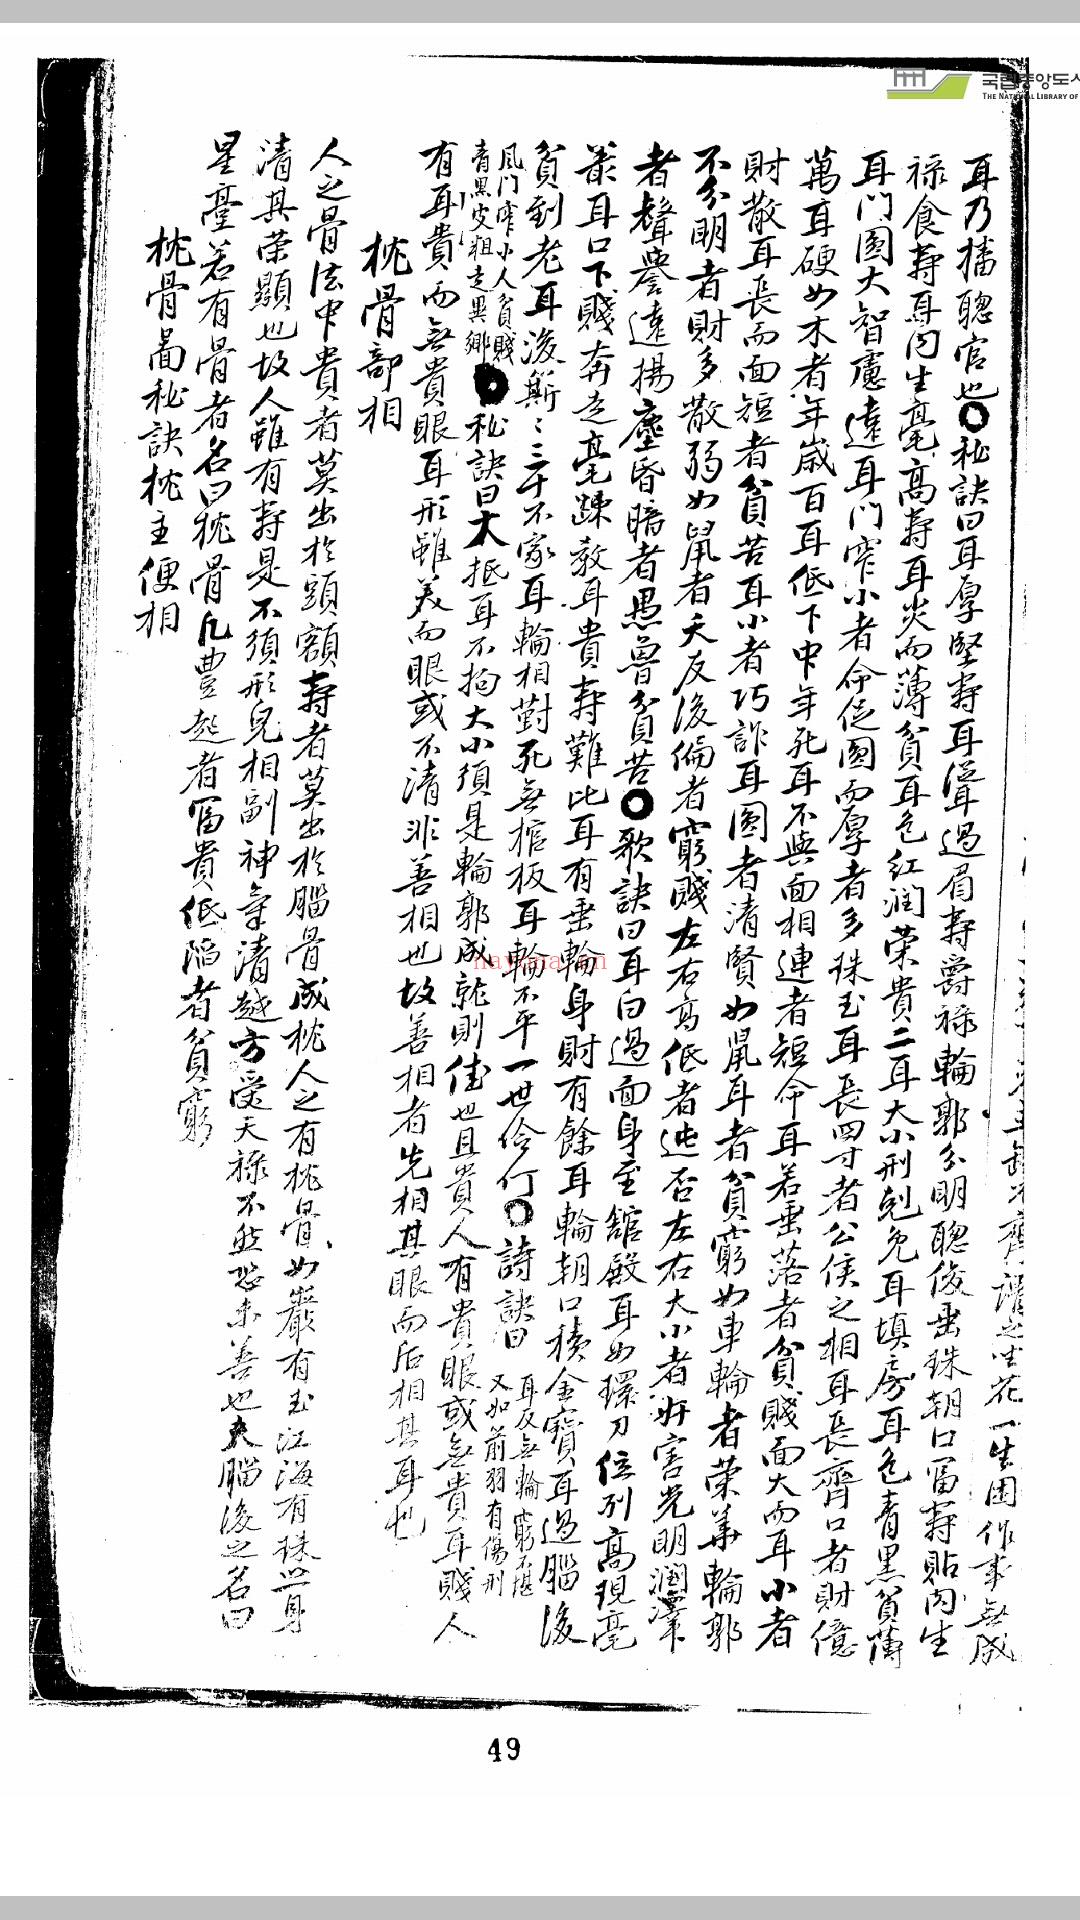 국립중앙도서
THE NATIONAL LIBRARY OF
一生困作事無成
耳乃播聰官也〇秘訣曰耳厚堅壽耳聳過眉壽爵祿輪郭分明聰俊垂珠朝口富壽貼肉生
祿食壽耳內生毫高壽耳尖而薄貧耳色紅潤榮貴二耳大小刑剋免耳填房耳色青黑貧薄
耳門圓大智慮遠耳門窄小者命促圓而厚者多珠玉耳長四寸者公侯之相耳長齊口者財億
萬耳硬如木者年歲百耳低下中年死耳不與面相連者短命耳若垂落者貧賤面大而耳小者
財散耳長而面短者貧苦耳小者巧詐耳圓者清賢如鼠耳者貧窮如車輪者榮華輪郭
不分明者財多散弱如鼠者夭反後偏者窮賤左右高低者迍否左右大小者妨害光明潤澤
者聲譽遠揚塵昏暗者愚魯貧苦〇歌訣曰耳白過面身至館殿耳如環刀位列高現毫
叢耳口下賤奔走毫踈教耳貴壽難比耳有垂輪身財有餘耳輪朝口積金寶耳過腦後
貧到老耳後斯〻三十不家耳輪相對死無棺板耳輪不平一世伶仃〇詩訣曰耳反無輪窮不堪
又如前羽有傷刑
風門窄小人貧賤
青黑皮粗走異鄉
秘訣曰大抵耳不拘大小須是輪郭成就則佳也且貴人有貴眼或無貴耳賤人
有耳貴而無貴眼耳形雖美而眼或不清非善相也故善相者先相其眼而后相其耳也
枕骨部相
人之骨法中貴者莫出於頭額壽者莫出於腦骨成枕人之有枕骨如巖有玉江海有珠世身
清其榮顯也故人雖有壽是不須形皃相副神氣清越方受天祿不然恐未善也夫腦後之名曰
星臺若有骨者名曰枕骨凡豊起者富貴低陷者貧窮
枕骨啚秘訣枕主便相
nayona.cn
49